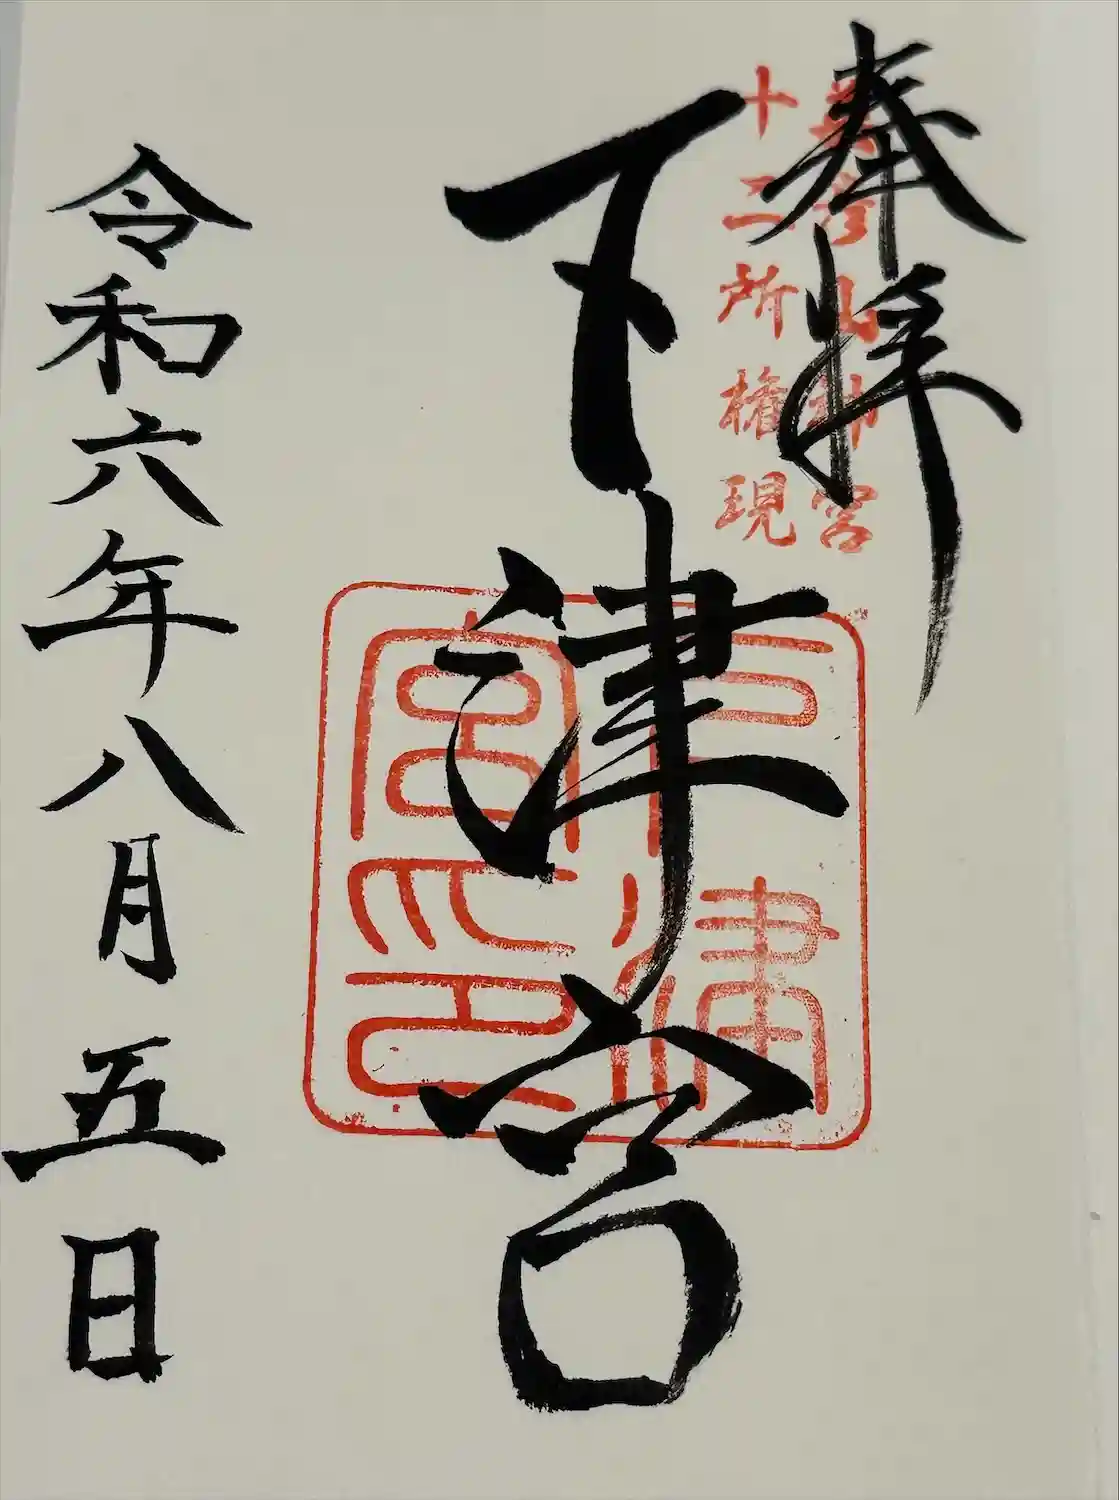 奉拝
英彦山神宮
十二所権現
下津宮
下津
宮印
令和六年八月五日